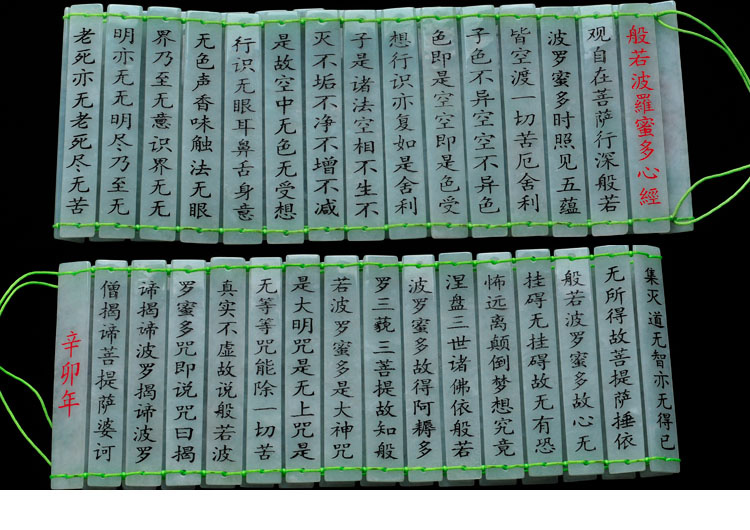 般若波羅蜜多心經
观自在菩萨行深般若
波罗蜜多时照见五蕴
皆空渡一切苦厄舍利
子色不异空空不异色
色即是空空即是色受
想行识亦复如是舍利
子是诸法空相不生不
灭不垢不净不增不减
是故空中无色无受想
行识无眼耳鼻舌身意
无色声香味触法无眼
界乃至无意识界无无
明亦无无明尽乃至无
老死亦无老死尽无苦
集灭道无智亦无得已
无所得故菩提萨捶依
般若波罗蜜多故心无
挂碍无挂碍故无有恐
怖远离颠倒梦想究竟
涅盘三世诸佛依般若
波罗蜜多故得阿耨多
罗三藐三菩提故知般
若波罗蜜多是大神咒
是大明咒是无上咒是
无等等咒能除一切苦
真实不虚故说般若波
罗蜜多咒即说咒曰揭
谛揭谛波罗揭谛波罗
僧揭谛菩提萨婆诃
辛卯年